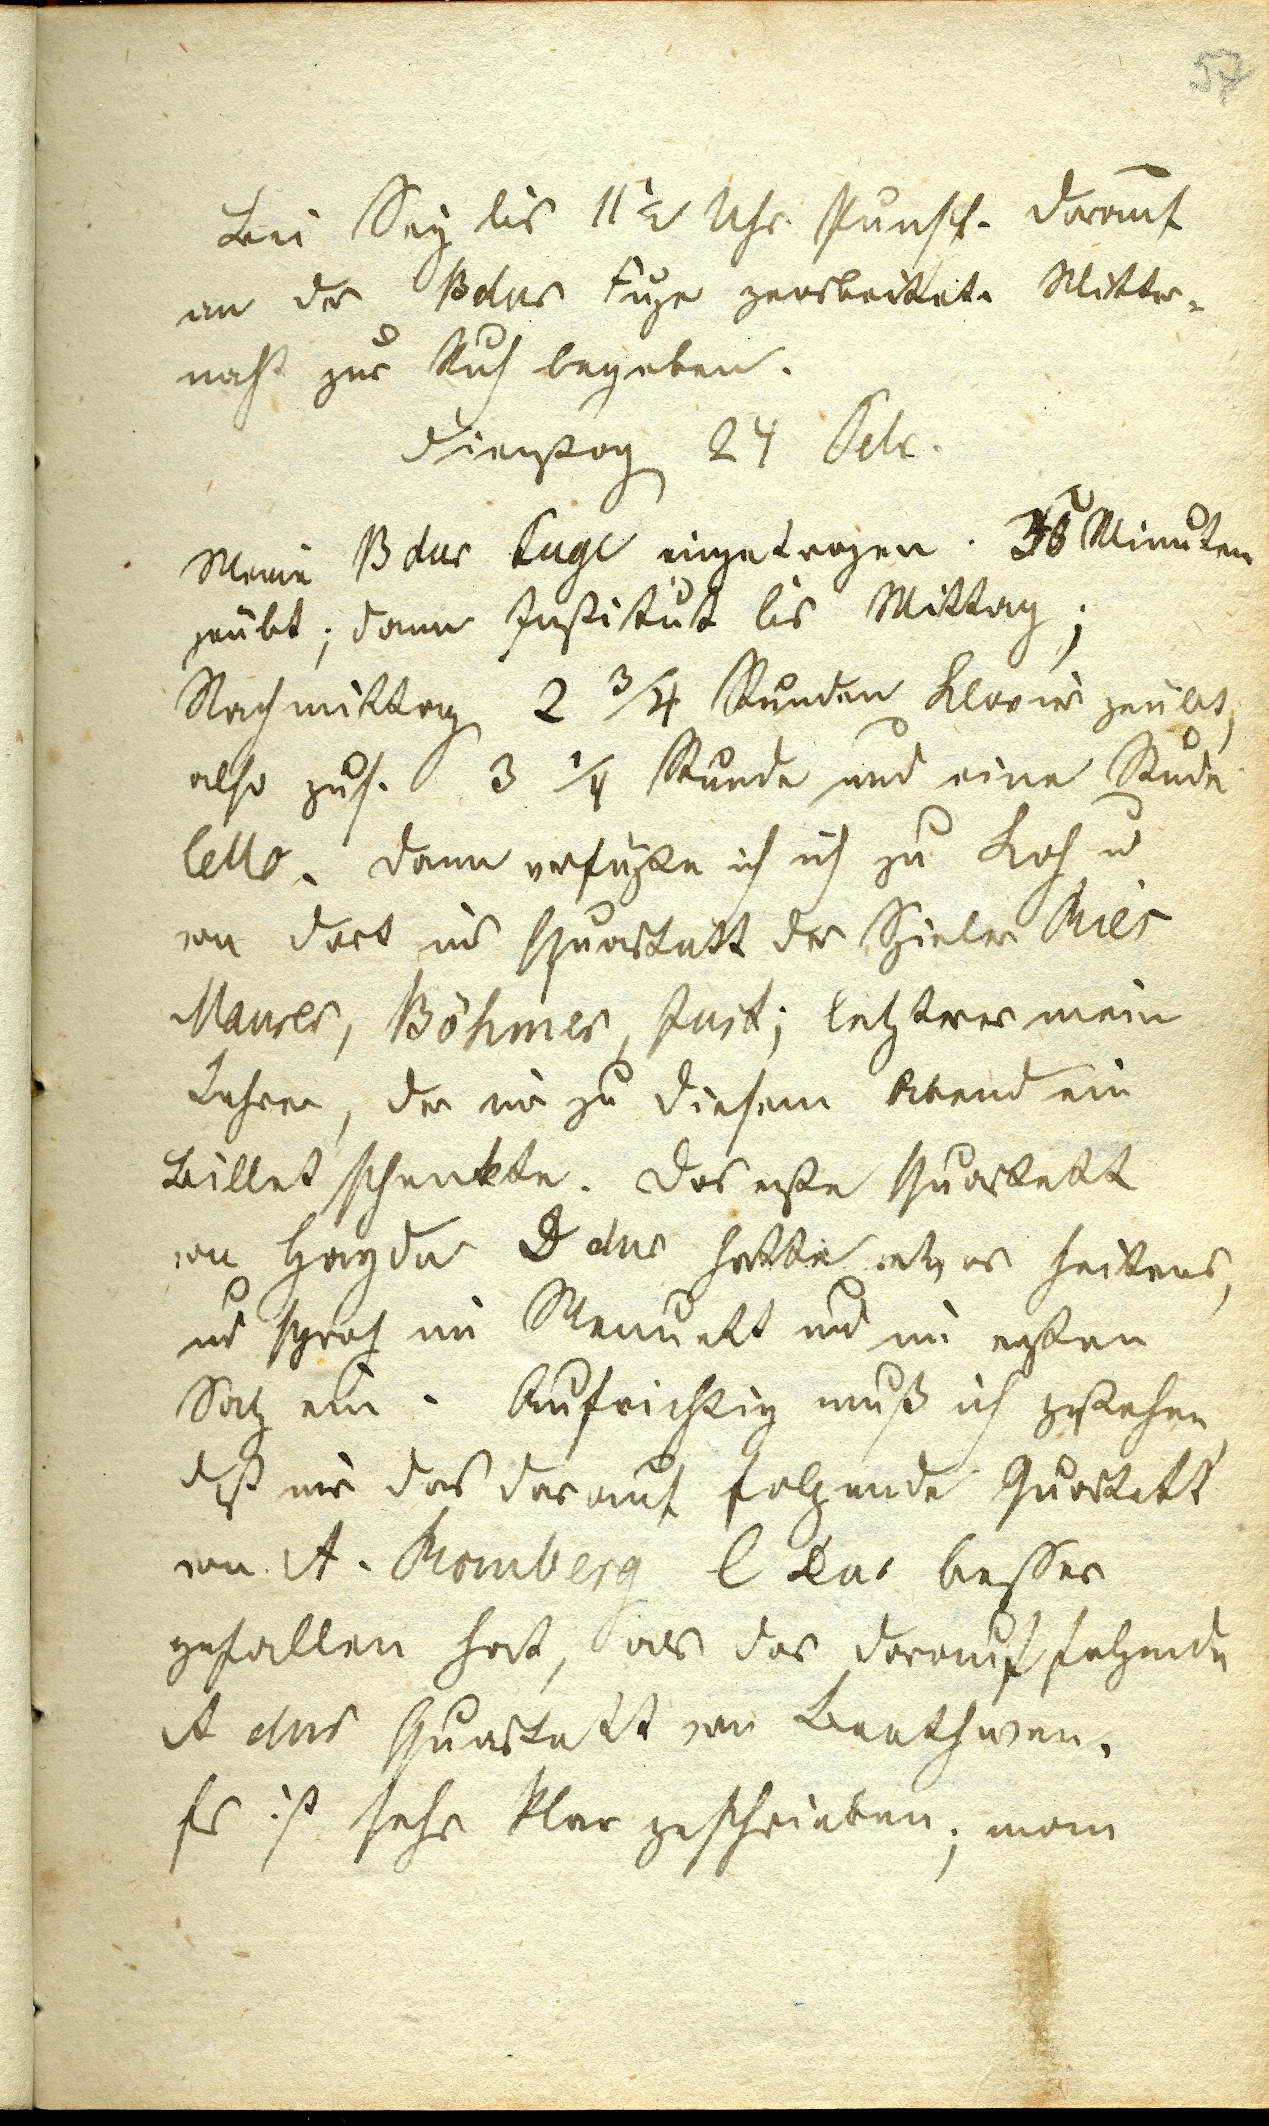 57
Bei Sey bis 11 1/2 Uhr Punsch. Darauf
an der Bdur Fuge gearbeitet. Mitter-
nacht zur Ruh begeben.
Dienstag 24 Febr.
Meine Bdur Fuge eingetragen. Minuten
geübt; dann Institut bis Mittag;
Nachmittag 2 3/4 Stunden Klavier geübt,
also zus. 3 1/4 Stunde und eine Stude
Cello. Dann verfügte ich ich zu Koch u
von dort ins Quartett der Spieler Ries
Maurer, Böhmer, Just; letzterer mein
Lehrer, der mir zu diesem Abend ein
Billet schenkte. Das erste Quartett
von Haydn D dur hatte etwas heiteres,
und sprach im Menuett und im ersten
Satz ein. Aufrichtig muß ich gestehen
daß mir das darauf folgende Quartett
von A. Romberg C Dur besser
gefallen hat, als das darauf folgende
A dur Quartett von Beethoven.
Es ist sehr klar geschrieben; man